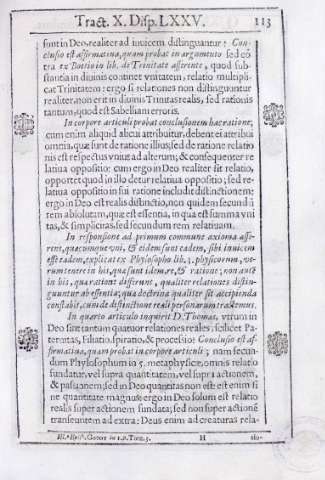 Tract. X. Disp. LXXV. 113
sunt in Deo, realiter ad inuicem distinguantur? Con-
clusio est affirmatiua, quam probat in argumẽto sed cõ
tra ex Boetio in lib. de Trinitate asserente, quod sub-
stantia in diuinis continet vnitatem, relatio multipli-
cat Trinitatem: ergo si relationes non distinguuntur
realiter, non erit in diuinis Trinitas realis, sed rationis
tantum, quod est Sabelliani erroris.
In corpore articuli probat conclusionem hac ratione;
cum enim aliquid alicui attribuitur, debent ei attribui
omnia, quæ sunt de ratione illius; sed de ratione relatio
nis est respectus vnius ad alterum; & consequenter re
latiua oppositio: cum ergo in Deo realiter sit relatio,
oportet quod in illo detur relatiua oppositio; sed re-
latiua oppositio in sui ratione includit distinctionem;
ergo in Deo est realis distinctio, non quidem secundũ
rem absolutam, quæ est essentia, in qua est summa vni
tas, & simplicitas, sed secundum rem relatiuam.
In responsione ad primum commune axioma asse-
rens, quæcumque vni, & eidem sunt eadem, sibi inuicem
esse eadem, explicat ex Phylosopho lib. 3. physicorum, ve-
rum tenere in his, quæ sunt idem re, & ratione; non autẽ
in his, quæ ratione differunt, qualiter relationes distin-
guuntur ab essentia; quæ doctrina qualiter sit accipienda
constabit, cum de distinctione reali personarum tractemus.
In quarto articulo inquirit D. Thomas, vtrum in
Deo sint tantum quatuor relationes reales, scilicet Pa-
ternitas, Filiatio, spiratio, & processio? Conclusio est af-
firmatiua, quam probat in corpore articuli; nam secun-
dum Phylosophum in 5. metaphysicæ, omnis relatio
fundatur, vel supra quantitatem, vel supra actionem,
& passionem; sed in Deo quantitas non est: est enim si
ne quantitate magnus: ergo in Deo solum est relatio
realis super actionem fundata; sed non super actionẽ
transeuntem ad extra: Deus enim ad creaturas rela-
in 1. p. Tom. 3. H tio-